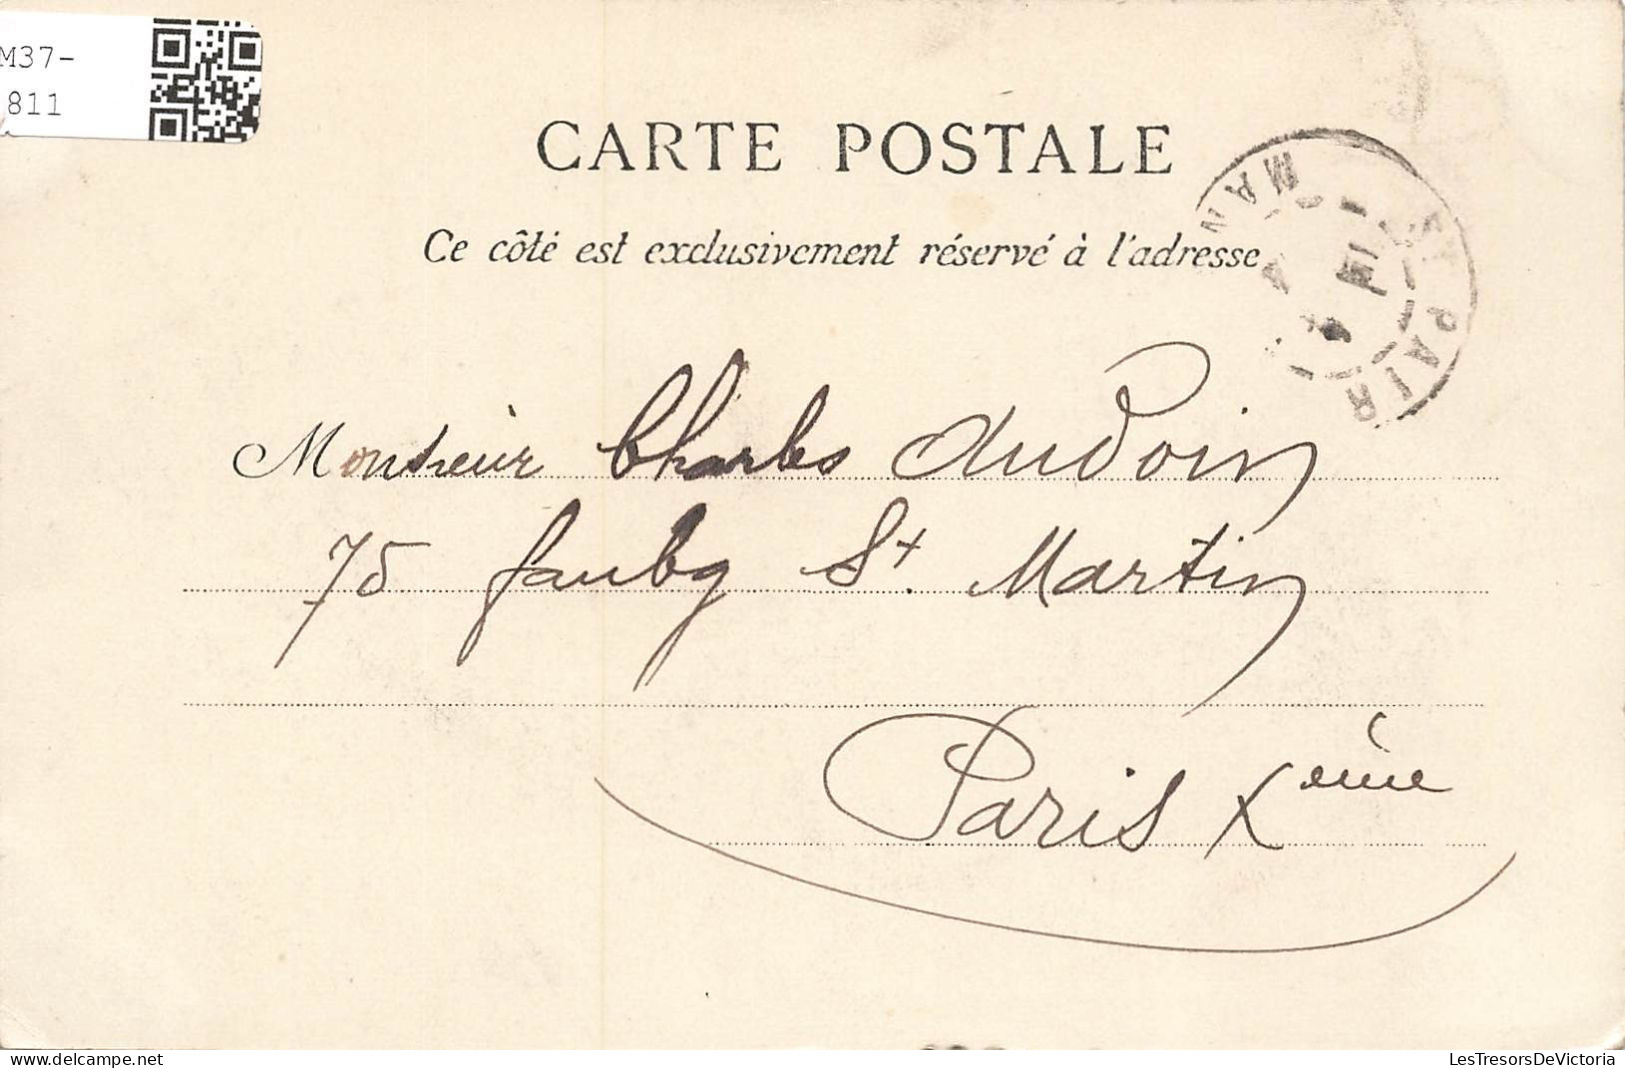 M37-
811
CARTE POSTALE
Ce côté est exclusivement réservé à l'adresse
ST PAIR MAN
Monsieur Charles Audoin
75 faubg St. Martin
Paris Xeme
delcampe.net
LesTresorsDeVictoria